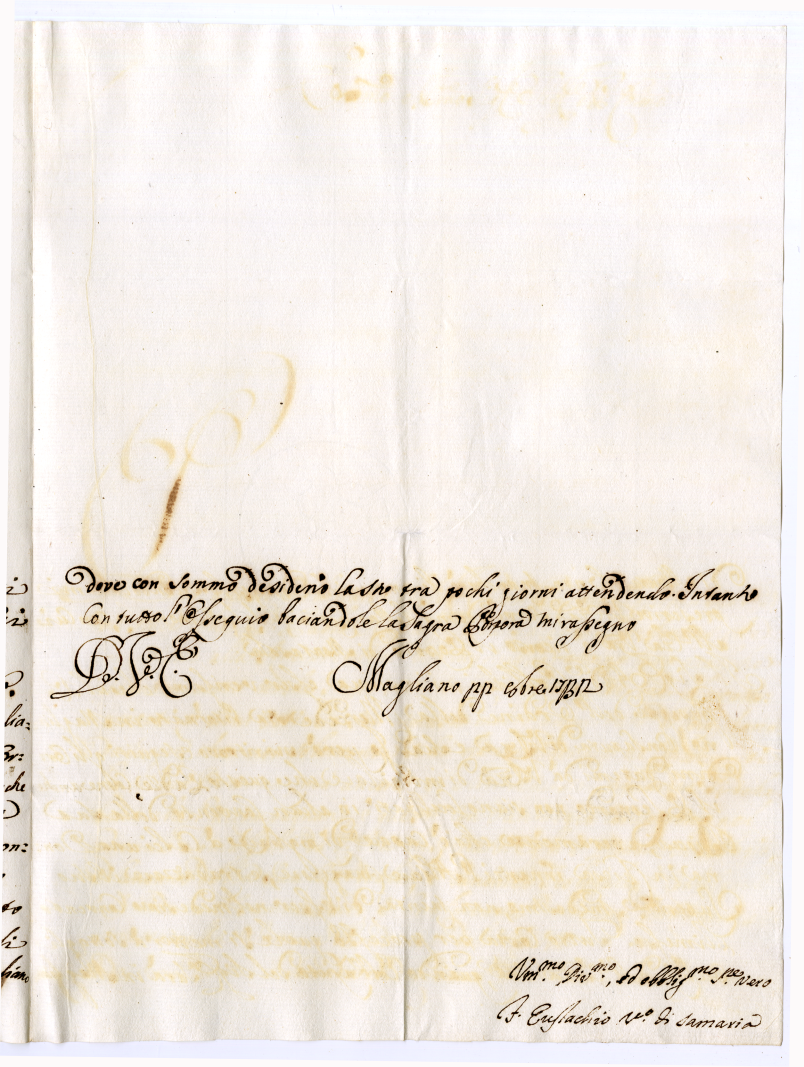 dove con sommo desiderio la sto tra pochi giorni attendendo. Intanto
con tutto l'Ossequio baciandole la Sagra Porpora mi rassegno
D. V. E.
Magliano pp
Um.mo, Div.mo, ed obblig.mo S.re vero
F. Eustachio Vo. di Samaria
li
lia:
che
on:
to
li